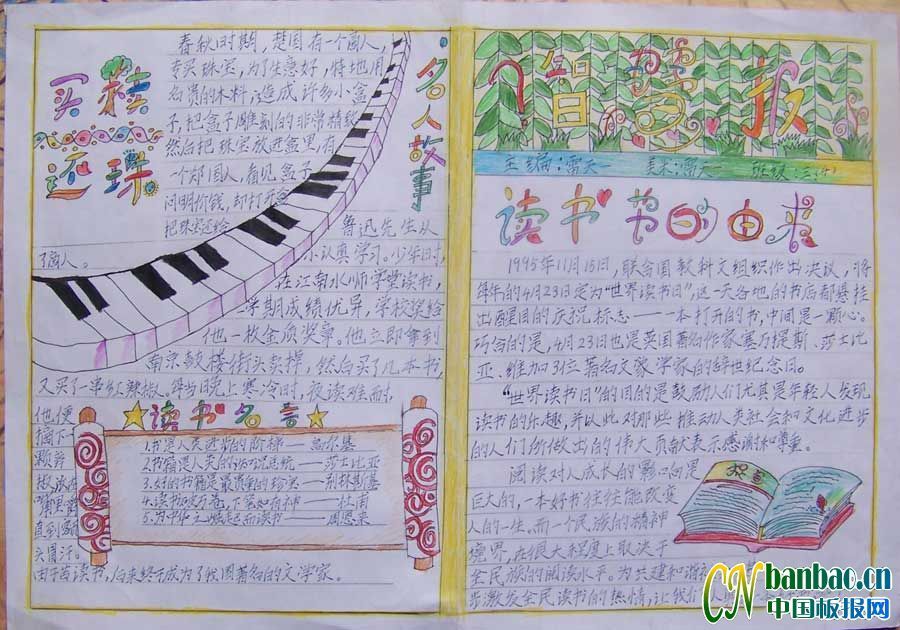 买椟
还珠
春秋时期,楚国有一个商人,
专买珠宝,为了生意好,特地用
名贵的木料,造成许多小盒
子,把盒子雕刻的非常精致
然后把珠宝放进盒里。有
一个郑国人,看见盒子
问明价钱,即打开盒
把珠宝还给
了商人。
名人故事
鲁迅先生从
小认真学习。少年时,
在江南水师学堂读书,
学期成绩优异,学校奖给
他一枚金质奖章。他立即拿到
南京鼓楼街头卖掉,然后买了几本书,
又买了一串红辣椒。每当晚上寒冷时,夜读难耐,
他便
摘下一
颗
放
嘴里
直到
头冒汗。
由于苦读书,后来终于成为了我国著名的文学家。
读书名言
1.书是人类进步的阶梯——高尔基
2.书籍是人类的——莎士比亚
3.好的书籍是最贵重的珍宝——别林斯基
4.读书破万卷,下笔如有神——杜甫
5.为中华之崛起而读书——周恩来
报
主编:雷天 美术:雷天 班级:三
读书节的由来
1995年11月15日,联合国教科文组织作出决议,将
每年的4月23日定为“世界读书日”,这一天各地的书店都悬挂
出醒目的庆祝标志——一本打开的书,中间是一颗心。
巧合的是,4月23日也是英国著名作家塞万提斯、莎士比
亚、维加3位著名文豪学家的辞世纪念日。
“世界读书日”的目的是鼓励人们尤其是年轻人发现
读书的乐趣,并以此对那些推动人类社会和文化进步
的人们所做出的伟大贡献表示感谢和尊重。
阅读对人成长的影响是
巨大的,一本好书往往能改变
人的一生。而一个民族的精神
境界,在很大程度上取决于
全民族的阅读水平。为共建和谐
步激发全民读书的热情,让我们
CN banbao.cn
中国板报网